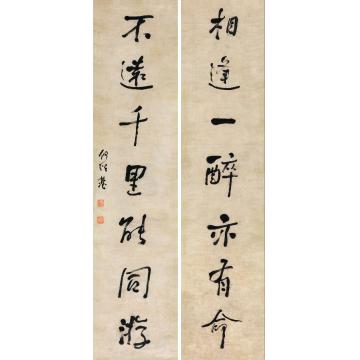 相逢一醉亦有命
不遠千里能同游
何紹基